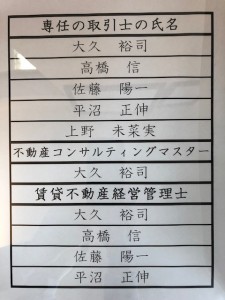 専任の取引士の氏名
大久 裕司
高橋 信
佐藤 陽一
平沼 正伸
上野 未菜実
不動産コンサルティングマスター
大久 裕司
賃貸不動産経営管理士
大久 裕司
高橋 信
佐藤 陽一
平沼 正伸